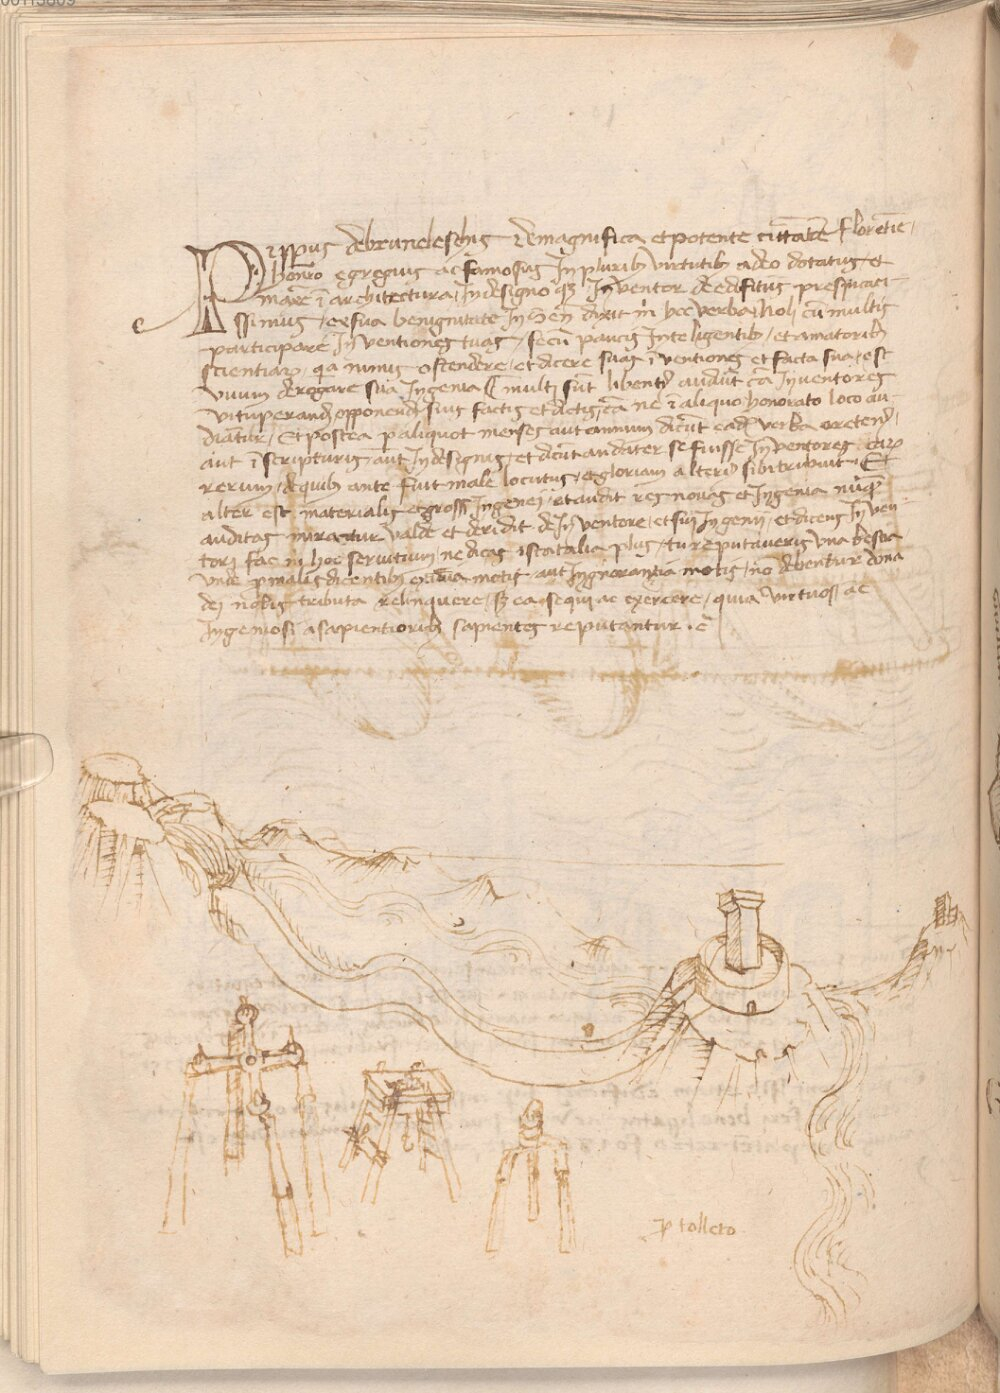 00113809
Pippus de brunelesghis de magnifica et potente cittate Florentie,
honōro egregius ac famosus In pluribꝫ virtutibꝫ adeo dotatus et
maxĒ ī architectura, In designo qꝫ Inventor de edifitus prespicaci-
ssimus, ex sua benignitate In Sen dixit m̄ hec verba, Noli cū multis
participare Inventiones tuas, secū paucis Inteligentibꝫ, et amatoribꝫ
scientiaꝝ, qa nimis ostendere, et dicere suas īventiones et facta sua, est
unum derogare sua Ingenia multi sūt libentʳ audiūt cā Inventores
vituperandi opponendi suis factis et dictis, cā ne ī aliquo honorato loco au-
diātur, Et postea p aliquot menses aut annum dicūt eadē verba oretenꝰ,
aut ī scripturis, aut In designis, et dicūt audater se fuisse Inventores eaꝝ
rerum, de quibꝫ ante fuit male locutus, et gloriam alteriꝰ sibi tribuūt. Et
alter est materialis et grossi Ingenei, et audit res novas et Ingenia nūqꝫ
auditas miratur valde et deridit de Inventore, et sui Ingenii, et dicens Inven
tori fac m̄ hoc servitium, ne dicas ista talia plus, tu reputaveris una bestia
unde p malis dicentibꝫ ex īvidia motis, aut Ingnorantia motis, nō debentur dona
dei nobis tributa relinquere, sꝫ ea sequi ac exercere, quia virtuosi ac
Ingeniosi a sapientioribꝫ sapientes reputantur.
p tolleto